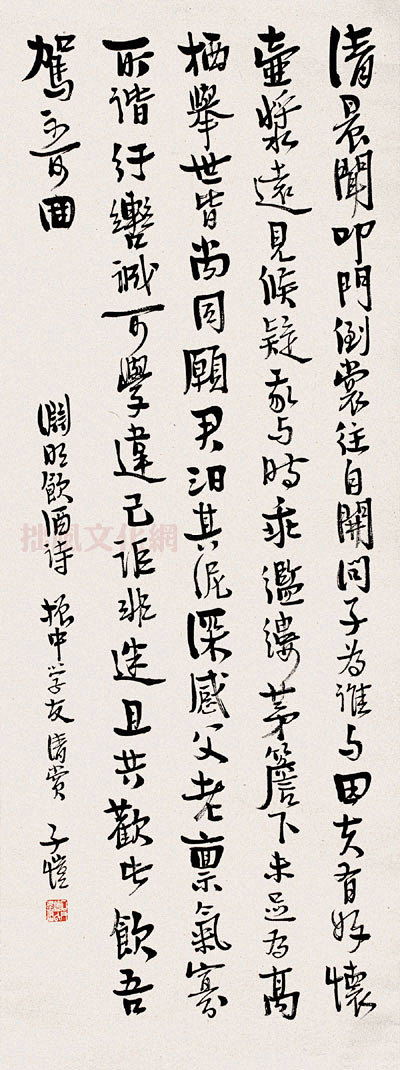 清晨聞叩門倒裳往自開問子為誰与田夫有好懷
壺漿遠見候疑我与時乖襤縷茅簷下未足為高
栖舉世皆尚同願君汩其泥深感父老稟氣寡
所諧紆轡誠可學違己詎非迷且共歡此飲吾
駕不可回
淵明飲酒詩 振中学友清賞 子愷
拙風文化網